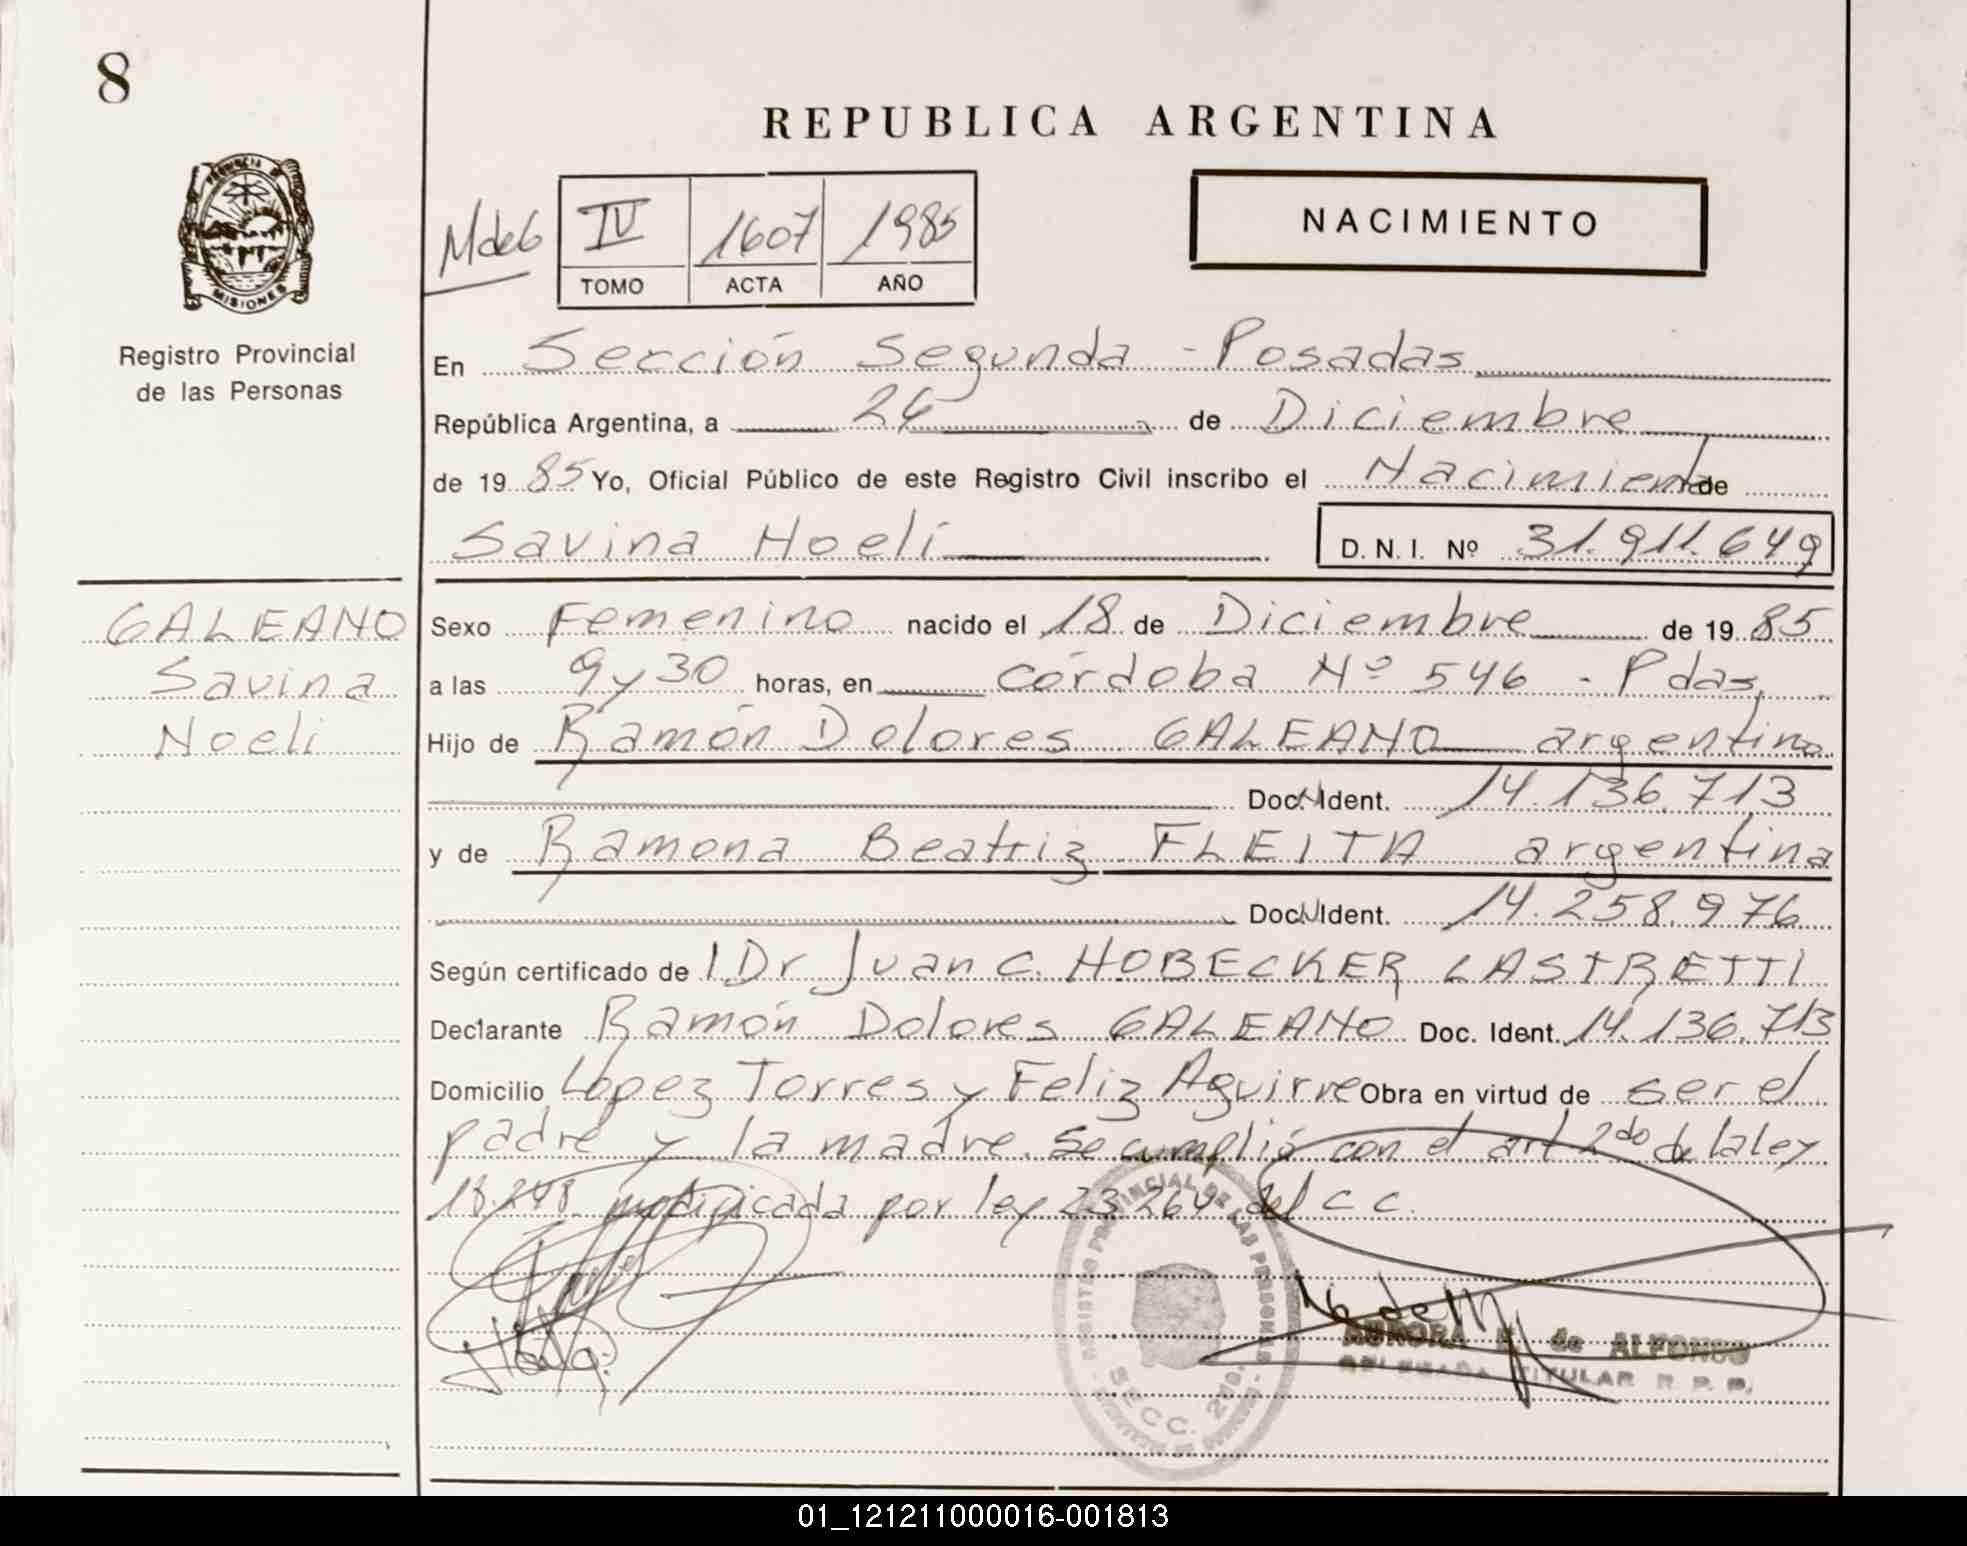 8
REPUBLICA ARGENTINA
PROVINCIA DE
MISIONES
Registro Provincial
de las Personas
IV 1607 1985
TOMO ACTA AÑO
NACIMIENTO
En Sección Segunda - Posadas
República Argentina, a 26 de Diciembre
de 1985 Yo, Oficial Público de este Registro Civil inscribo el Nacimiento de
Savina Noelí
D. N. I. Nº 31.911.649
GALEANO
Savina
Noeli
Sexo Femenino nacido el 18 de Diciembre de 1985
a las 9 y 30 horas, en Córdoba Nº 546 - Pdas,
Hijo de Ramón Dolores GALEANO argentino
Doc. Ident. 14.136.713
y de Ramona Beatriz FLEITA argentina
Doc. Ident. 14.258.976
Según certificado de l Dr Juan C. HOBECKER LASTRETTI
Declarante Ramón Dolores GALEANO Doc. Ident. 14.136.713
Domicilio López Torres y Feliz Aguirre Obra en virtud de ser el
padre y la madre. Se cumplió con el art 2do de la ley
18.248 modificada por ley 23.264 del C C.
REGISTRO PROVINCIAL DE LAS PERSONAS
SECC. 2da.
AURORA de ALFONSO
DELEGADA TITULAR R. P. P.
01_121211000016-001813